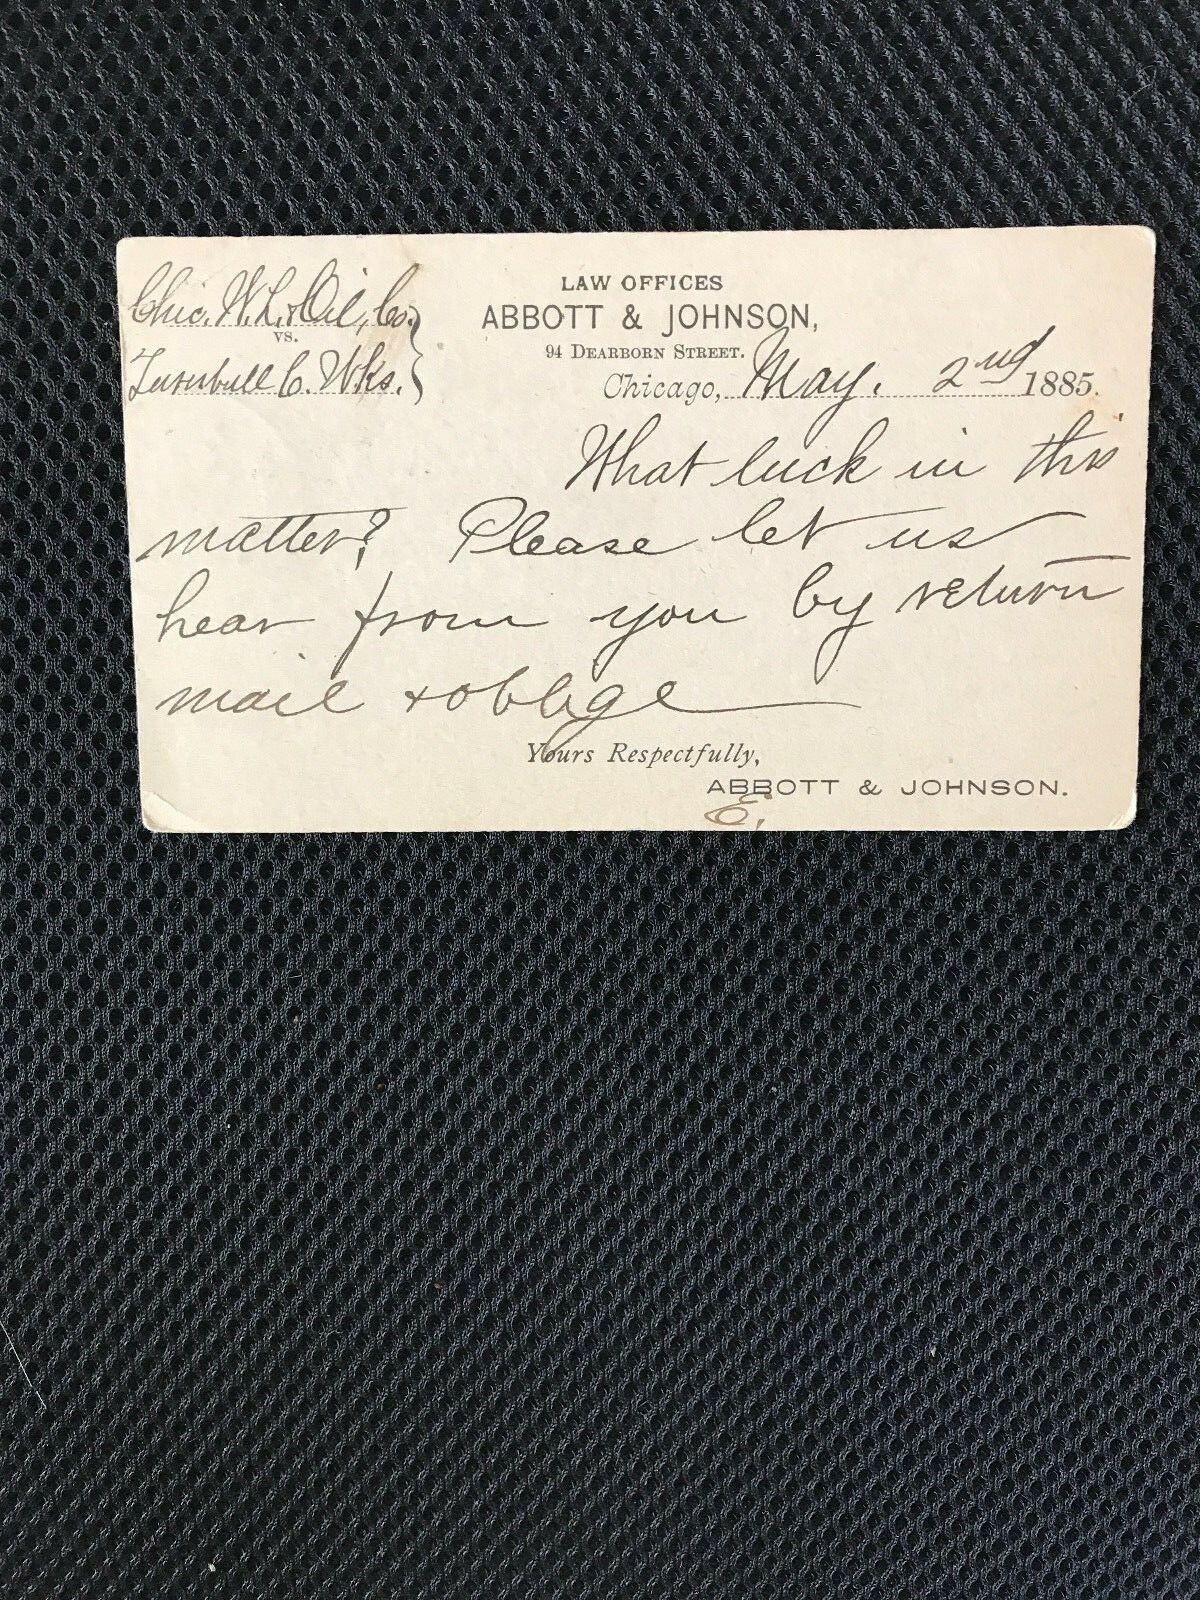 Chic. W. L. & Oil, Co.
vs.
Turnbull C. Wks.
LAW OFFICES
ABBOTT & JOHNSON,
94 DEARBORN STREET.
Chicago, May. 2nd 1885.
What luck in this
matter? Please let us
hear from you by return
mail & oblige
Yours Respectfully,
ABBOTT & JOHNSON.
E.